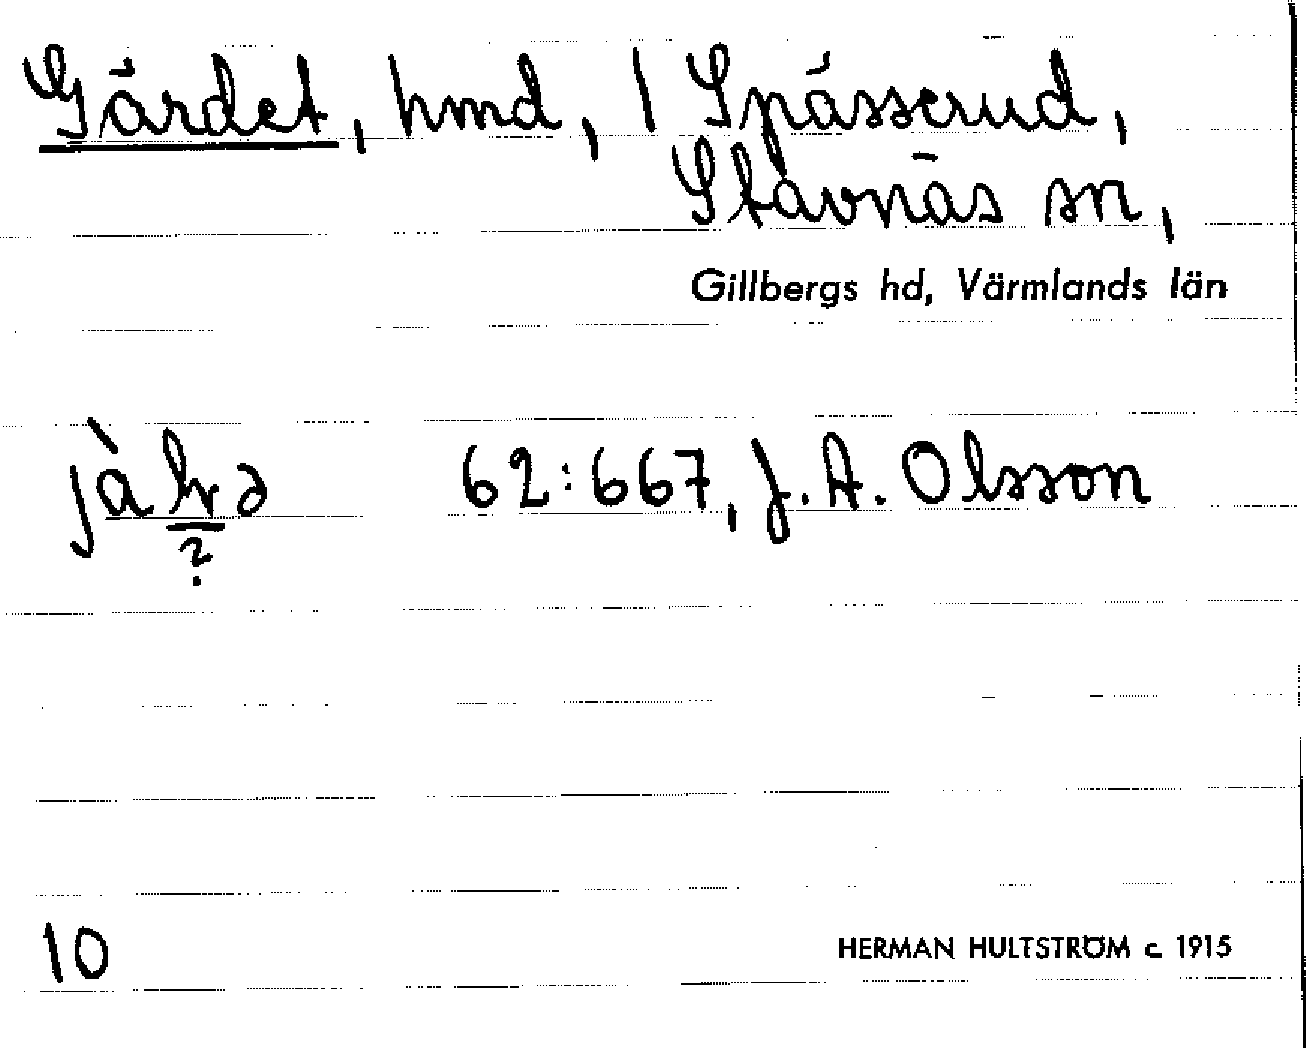 Gärdet, hmd, 1 Spässerud,
Stavnäs sn,
Gillbergs hd, Värmlands län
62:667, J. A. Olsson
?
10
HERMAN HULTSTRÖM c. 1915